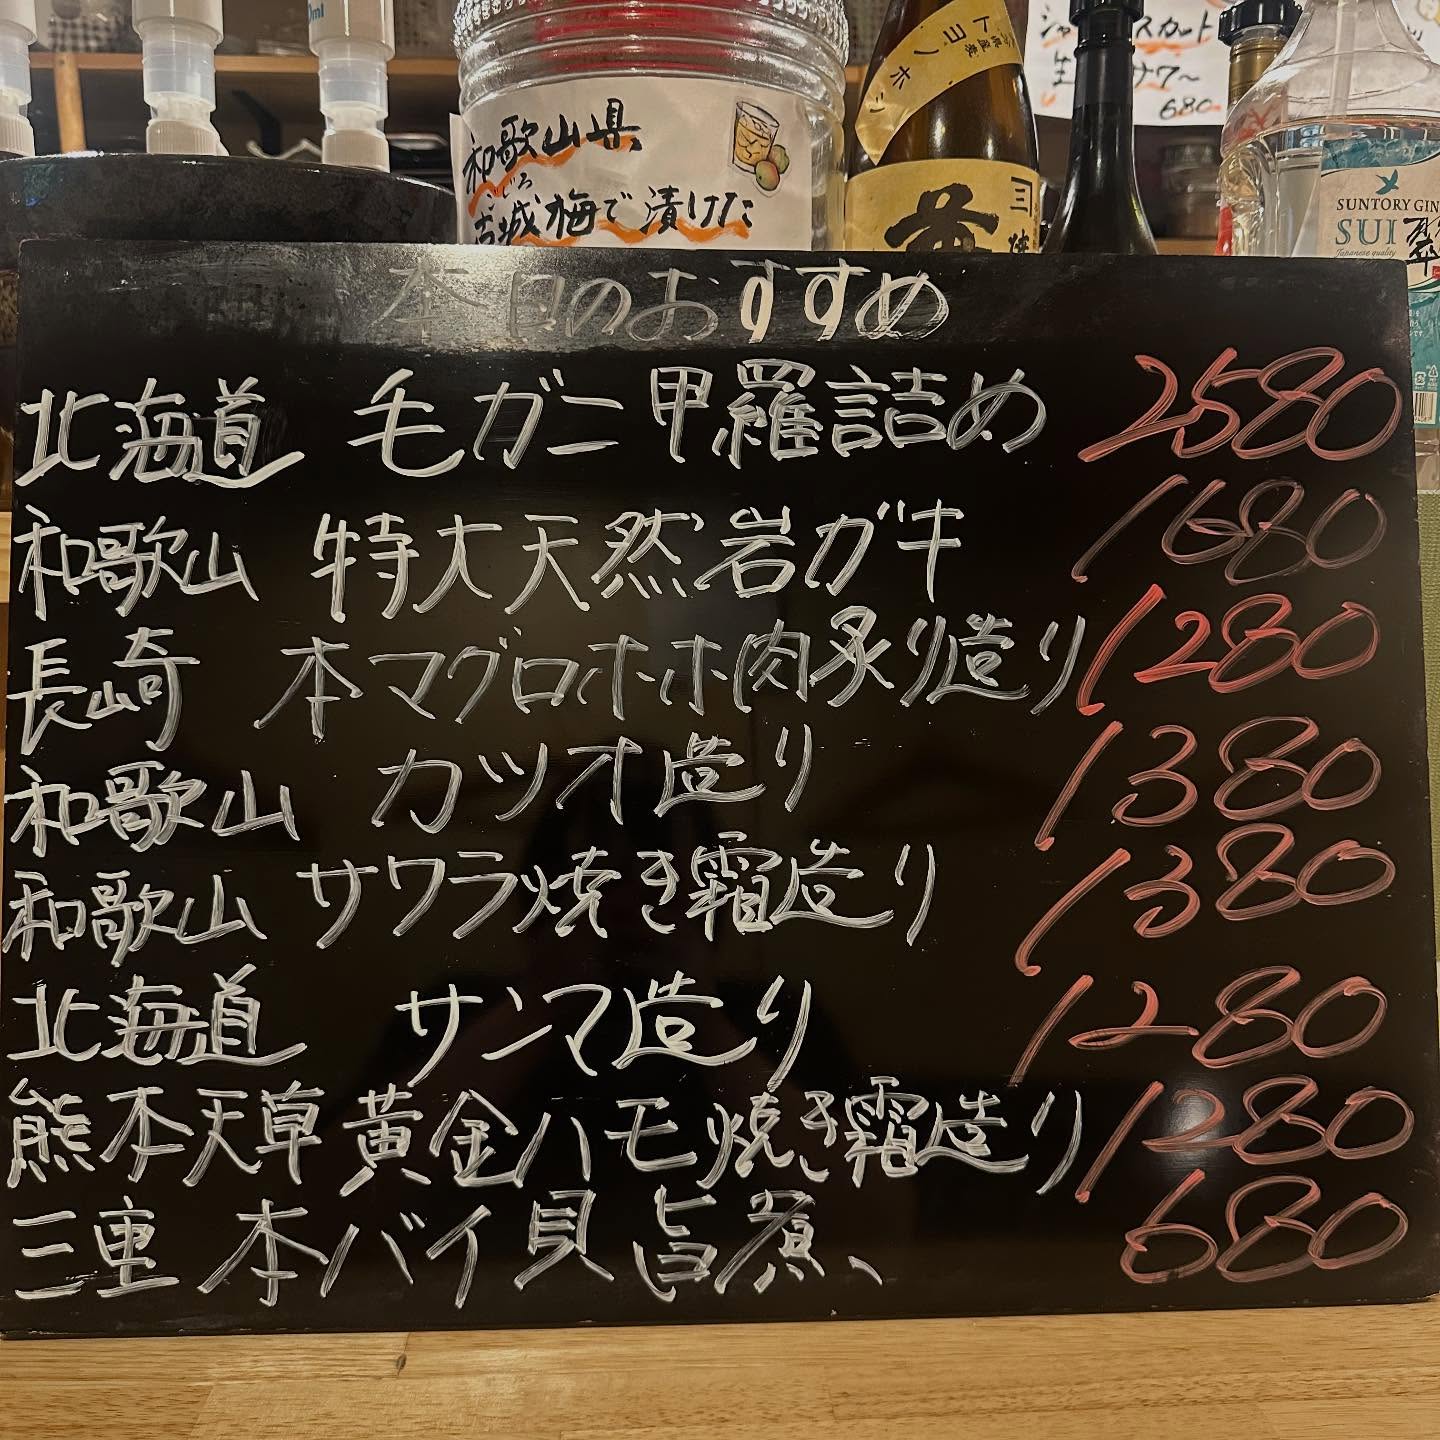 和歌山県
ごじろ
古城梅で漬けた
トヨノホシ
シャ スカット
生 ワ〜
680
SUNTORY GIN
SUI 翠
Japanese quality
本日のおすすめ
北海道 毛ガニ甲羅詰め 2580
和歌山 特大天然岩ガキ 1680
長崎 本マグロホホ肉炙り造り 1280
和歌山 カツオ造り 1380
和歌山 サワラ焼き霜造り 1380
北海道 サンマ造り 1280
熊本天草 黄金ハモ焼き霜造り 1280
三重 本バイ貝旨煮、 680